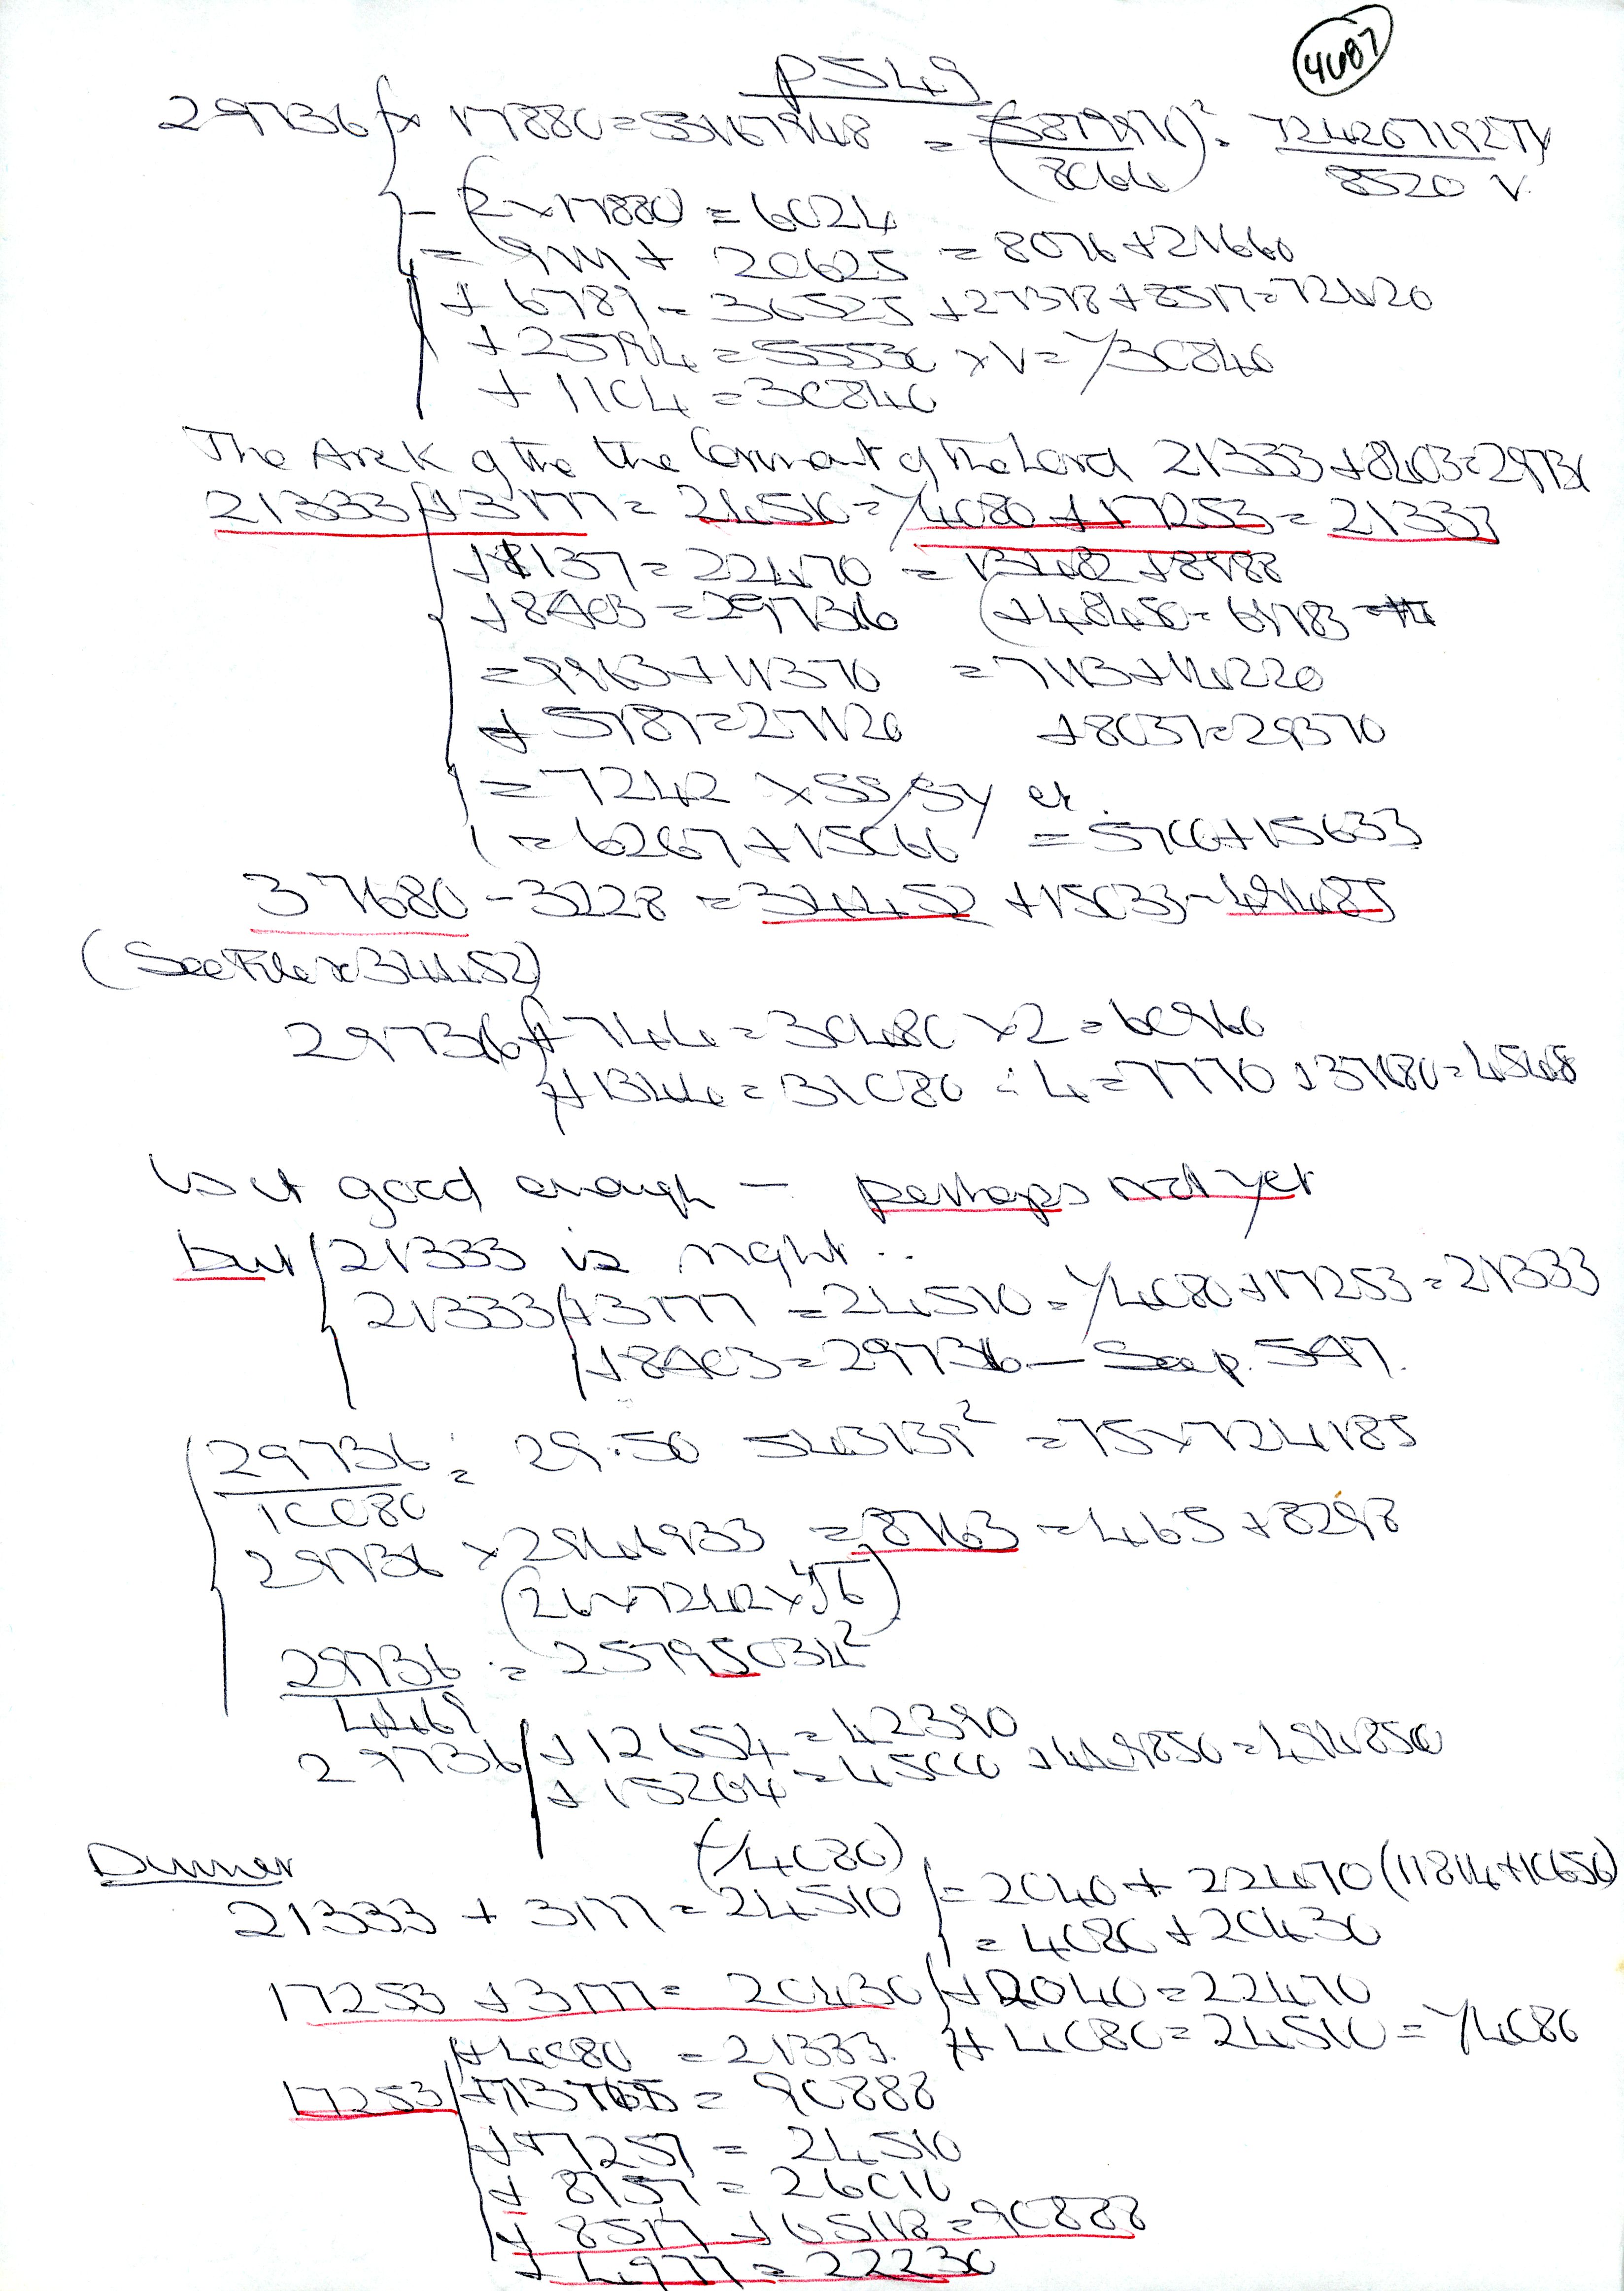 4087
P549
29736 { × 17880 = 53167948 = (587997)² = 7242671927
8064 8520 V.
- (2×17880) = 6024
+ 20625 = 8076 + 21660
+ 6789 = 36525 + 27378 + 8517 = 72420
+ 25794 = 55530 × V = Y30840
+ 1104 = 30840
The Ark of the the Covenant of the Lord 21333 + 8403 = 29736
21333 { + 3177 = 24510 = Y4080 + 17253 = 21333
+ 1137 = 22470 = 13482 + 8988
+ 8403 = 29736 (+ 48450 =
= 9963 + 11370 = 7113 + 14220
+ 5787 = 27120 + 8037 = 29370
= 7242 × SS/SY et
= 6267 + 15066 = 5700 + 15633
37680 - 3228 = 34452 + 15033 = 49485
(See File x 34452)
29736 { + 744 = 30480 × 2 = 60960
+ 1344 = 31080 ÷ 4 = 7770 + 37680 =
Is it good enough — perhaps not yet
but { 21333 is right..
21333 { + 3177 = 24510 = Y4080 + 17253 = 21333
+ 8403 = 29736 — See p. 547.
29736 = 29.50 543139² = 75 × 724185
10080
29736 × 2946933 = 8763 = 465 + 8298
(26 × 7242 × ⁴√6)
29736 = 25795034²
4469
29736 { + 12654 = 42390
+ 15264 = 45000 + 449850 = 494850
Dinner (Y4080)
21333 + 3177 = 24510 { = 2040 + 22470 (11814 + 10656)
= 4080 + 20430
17253 + 3177 = 20430 { + 2040 = 22470
+ 4080 = 21333. + 4080 = 24510 = Y4080
17253 { = 90888
+ 7257 = 24510
+ 8757 = 26010
+ 8517 + 65118 = 90888
+ 4977 = 22230